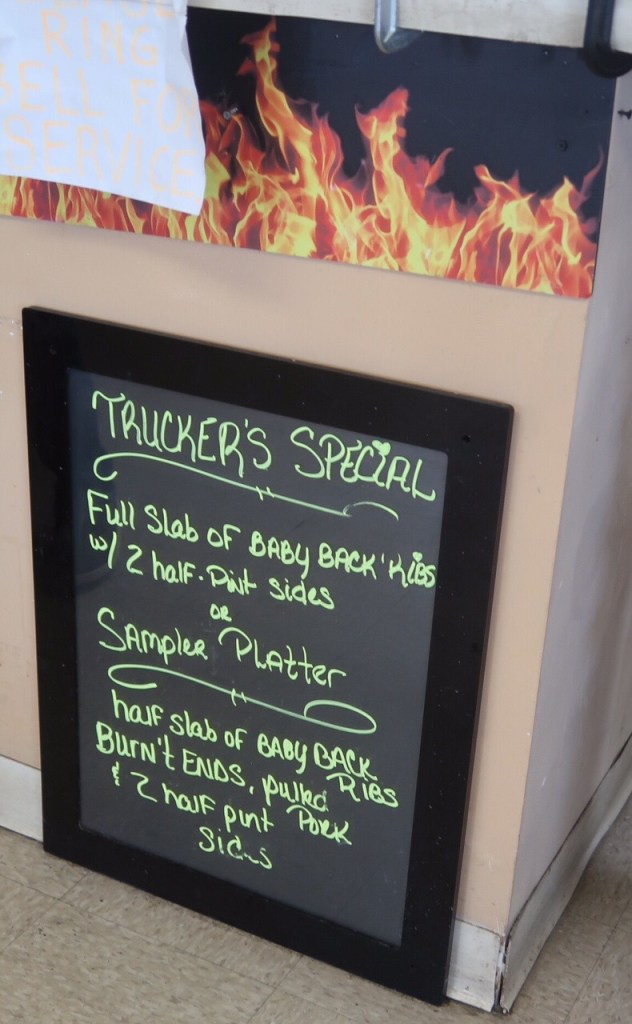 RING
BELL FOR
SERVICE
TRUCKER'S SPECIAL
Full Slab OF BABY BACK RiBS
w/ 2 half-Pint sides
OR
SAmpleR PLAtteR
half slab of BABY BACK
RIBS
BURN't ENDS, pulled
& 2 half pint PORK
Sides